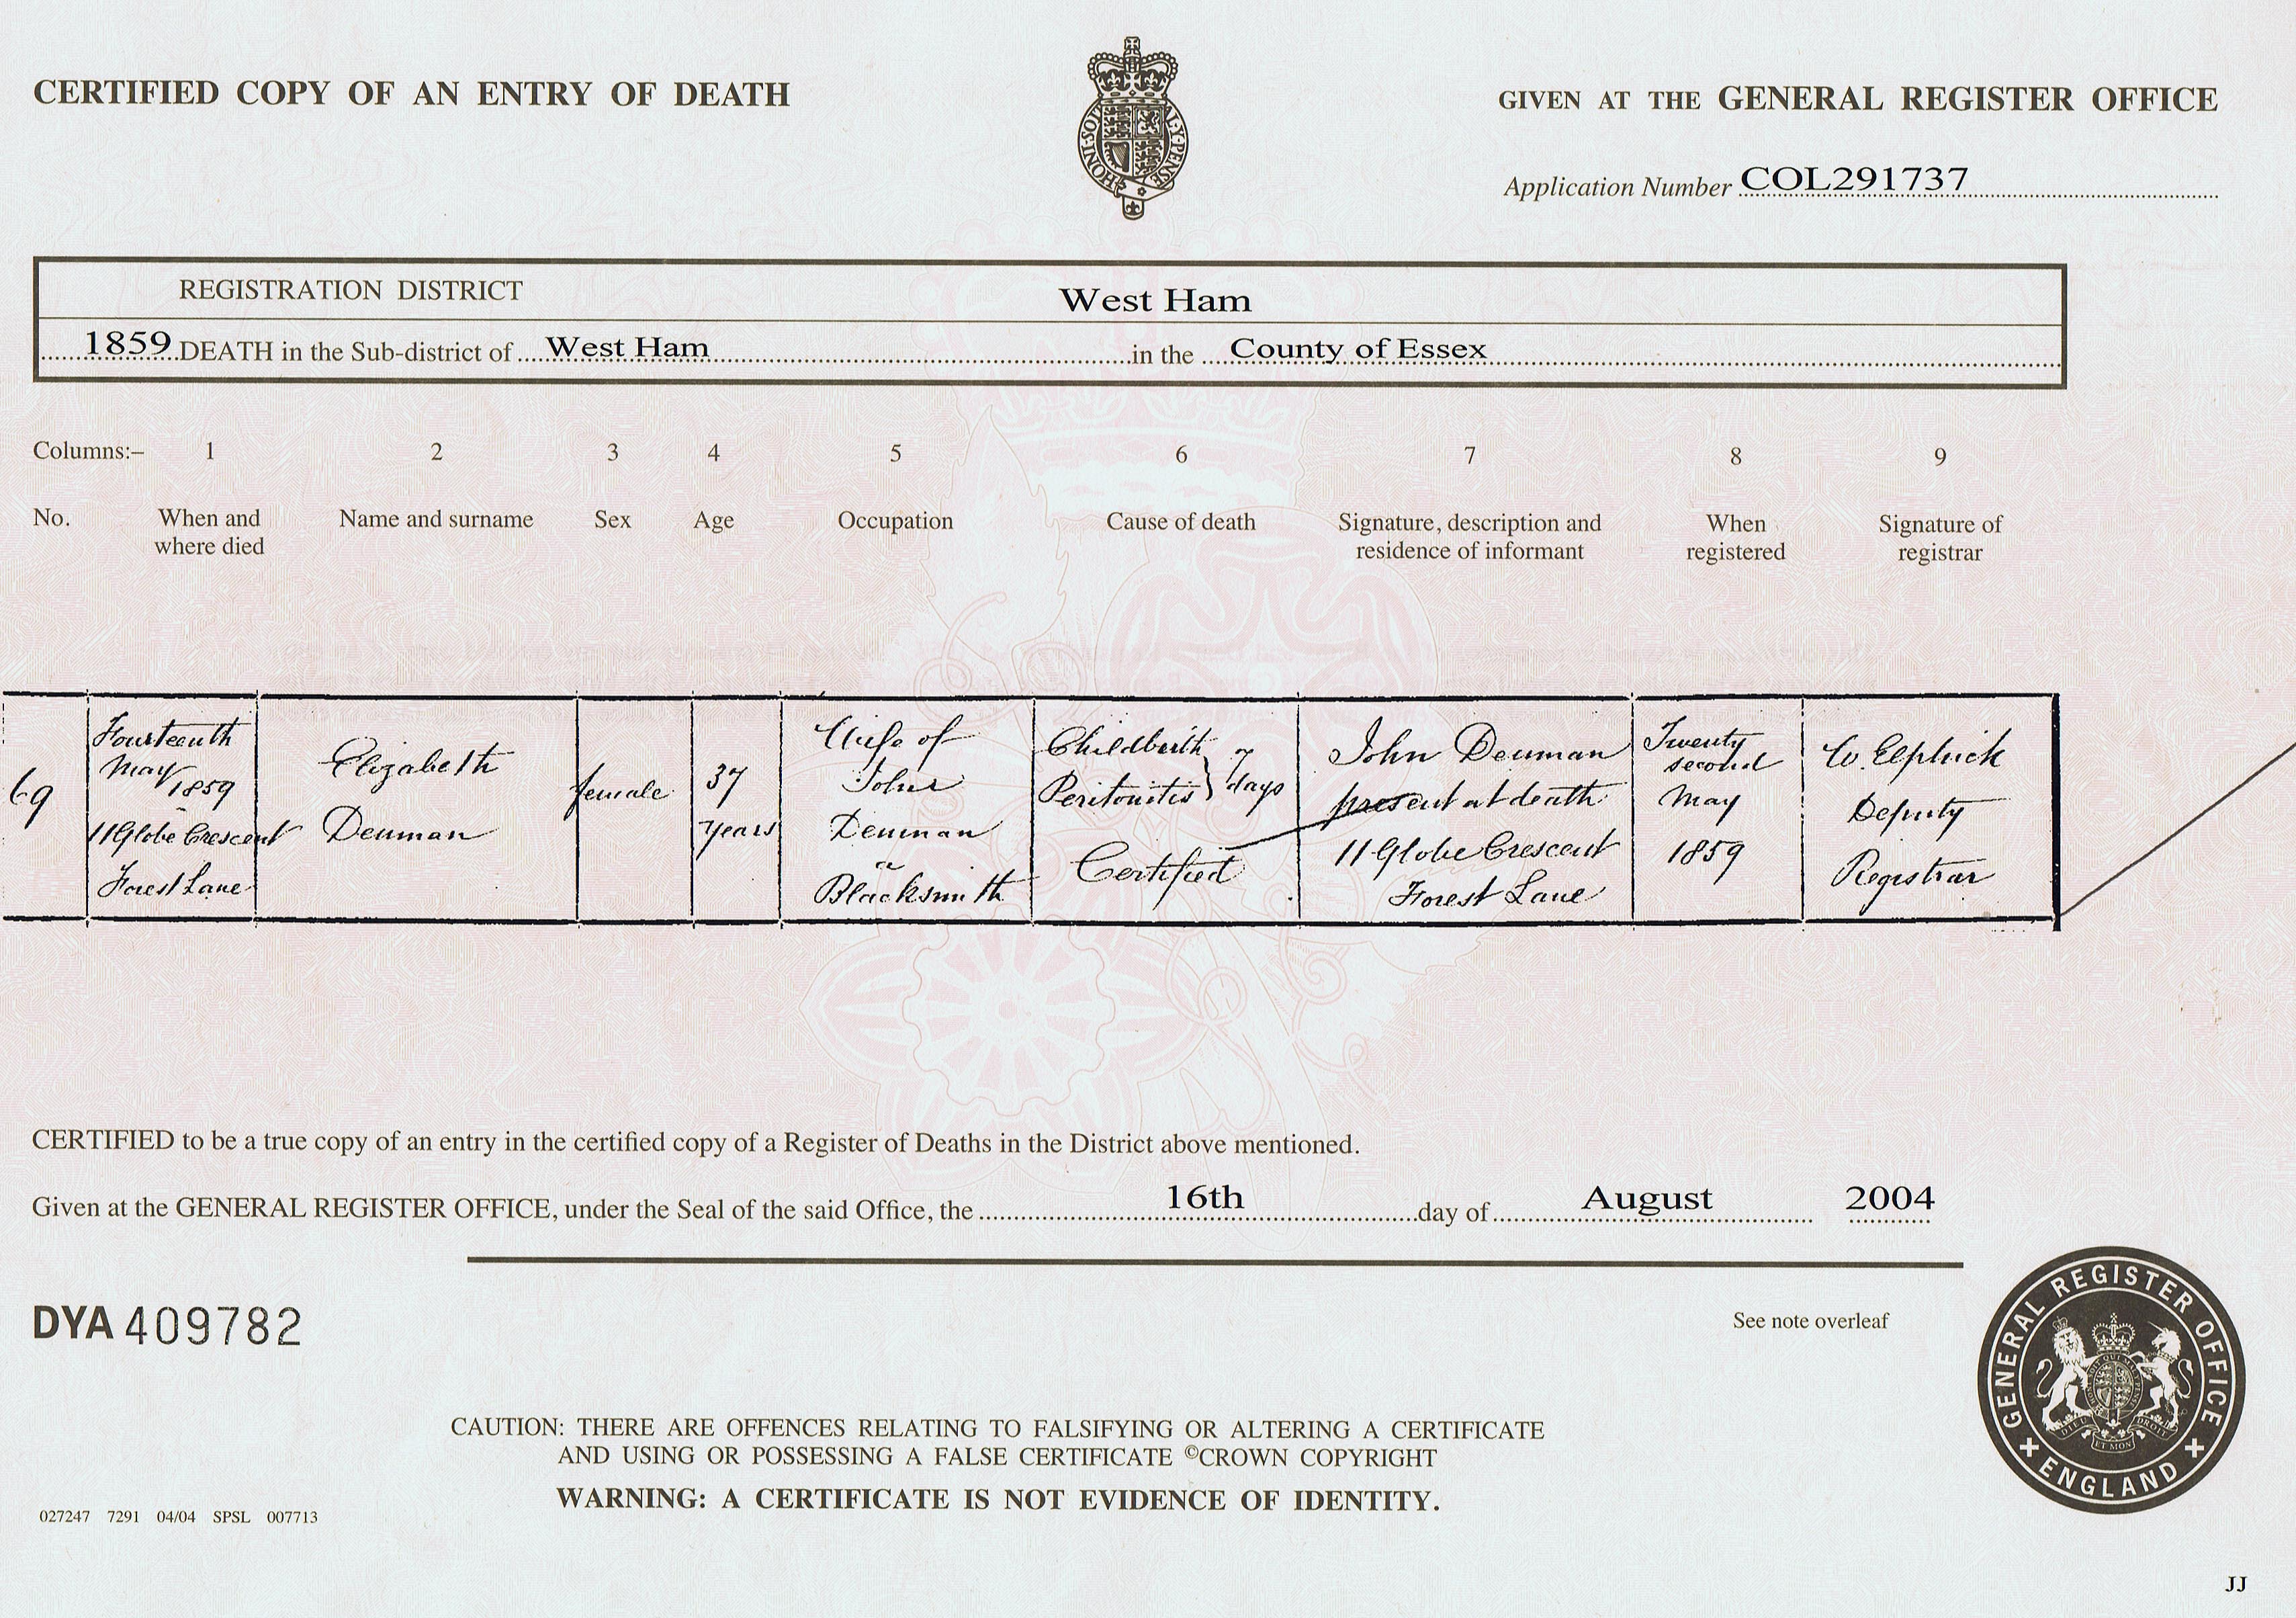 CERTIFIED COPY OF AN ENTRY OF DEATH
GIVEN AT THE GENERAL REGISTER OFFICE
HONI·SOI
AL·Y·PENSE
Application Number COL291737
REGISTRATION DISTRICT West Ham
1859 DEATH in the Sub-district of West Ham in the County of Essex
Columns:– 1 2 3 4 5 6 7 8 9
No. When and where died Name and surname Sex Age Occupation Cause of death Signature, description and residence of informant When registered Signature of registrar
69
Fourteenth
May
1859
11 Globe Crescent
Forest Lane
Elizabeth
Denman
female
37
years
Wife of
John
Denman
a
Blacksmith
Childbirth
Peritonitis } 7 days
Certified
John Denman
present at death
11 Globe Crescent
Forest Lane
Twenty
second
May
1859
W. Elphick
Deputy
Registrar
CERTIFIED to be a true copy of an entry in the certified copy of a Register of Deaths in the District above mentioned.
Given at the GENERAL REGISTER OFFICE, under the Seal of the said Office, the 16th day of August 2004
DYA 409782
See note overleaf
GENERAL REGISTER OFFICE
DIEU ET MON DROIT
+ ENGLAND +
CAUTION: THERE ARE OFFENCES RELATING TO FALSIFYING OR ALTERING A CERTIFICATE
AND USING OR POSSESSING A FALSE CERTIFICATE ©CROWN COPYRIGHT
WARNING: A CERTIFICATE IS NOT EVIDENCE OF IDENTITY.
027247 7291 04/04 SPSL 007713
JJ